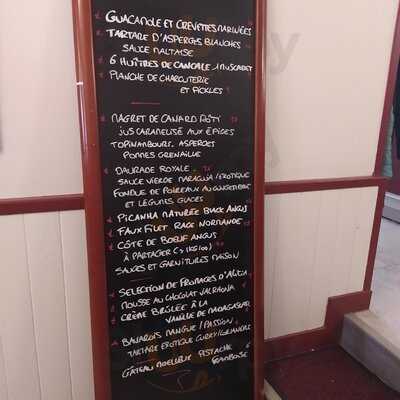 GUACAMOLE ET CREVETTES MARINÉES
TARTARE D'ASPERGES BLANCHES
SAUCE MALTAISE
6 HUÎTRES DE CANCALE
PLANCHE DE CHARCUTERIE
ET PICKLES
MAGRET DE CANARD RÔTI
JUS CARAMELISÉ AUX ÉPICES
TOPINAMBOURS, ASPERGES
POMMES GRENAILLE
DAURADE ROYALE
SAUCE VIERGE EXOTIQUE
FONDUE DE POIREAUX AU GINGEMBRE
ET LÉGUMES GLACÉS
PICANHA MATURÉE BLACK ANGUS
FAUX FILET RACE NORMANDE
CÔTE DE BOEUF ANGUS
À PARTAGER
SAUCES ET GARNITURES MAISON
SELECTION DE FROMAGES
MOUSSE AU CHOCOLAT VALRHONA
CRÈME BRÛLÉE À LA
VANILLE DE MADAGASCAR
BAVAROIS MANGUE/PASSION
TARTARE EXOTIQUE
GÂTEAU MOELLEUX PISTACHE
FRAMBOISE